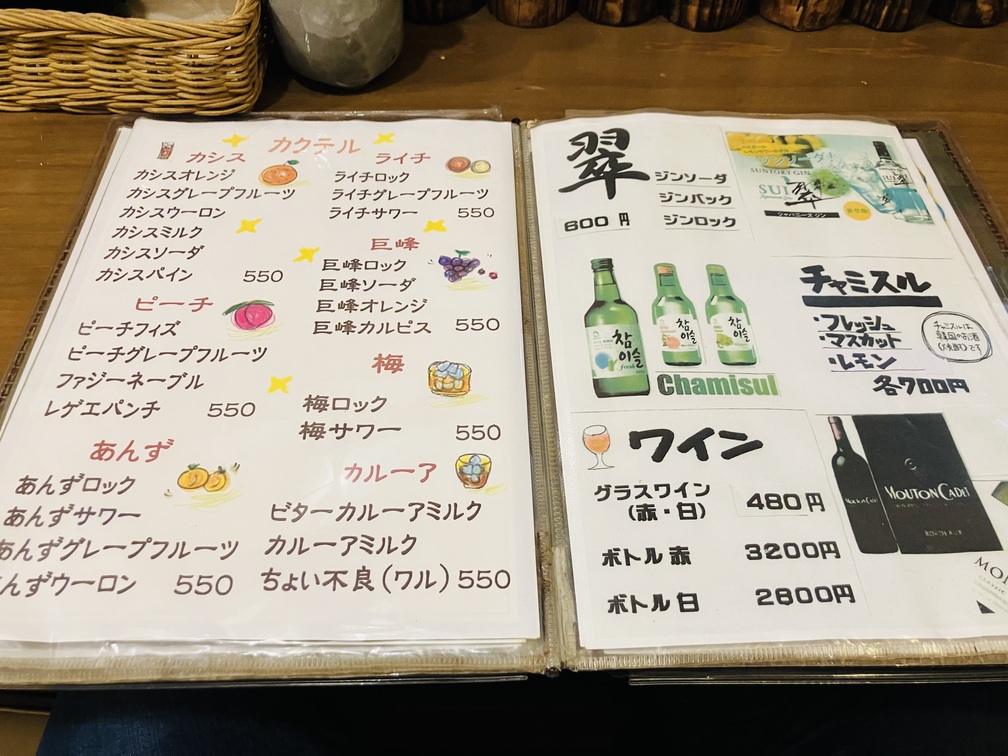 カクテル
カシス
カシスオレンジ
カシスグレープフルーツ
カシスウーロン
カシスミルク
カシスソーダ
カシスパイン 550
ピーチ
ピーチフィズ
ピーチグレープフルーツ
ファジーネーブル
レゲエパンチ 550
あんず
あんずロック
あんずサワー
あんずグレープフルーツ
んずウーロン 550
ライチ
ライチロック
ライチグレープフルーツ
ライチサワー 550
巨峰
巨峰ロック
巨峰ソーダ
巨峰オレンジ
巨峰カルピス 550
梅
梅ロック
梅サワー 550
カルーア
ビターカルーアミルク
カルーアミルク
ちょい不良(ワル) 550
翠
ジンソーダ
ジンバック
ジンロック
600 円
ジンソーダ!
SUNTORY GIN
SUI
翠
ジャパニーズ ジン
チャミスル
・フレッシュ
・マスカット
・レモン
各700円
チャミスルは
韓国のお酒
참이슬
fresh
참이슬
참이슬
Chamisul
ワイン
グラスワイン
(赤・白) 480円
ボトル 赤 3200円
ボトル 白 2800円
MOUTON CADET